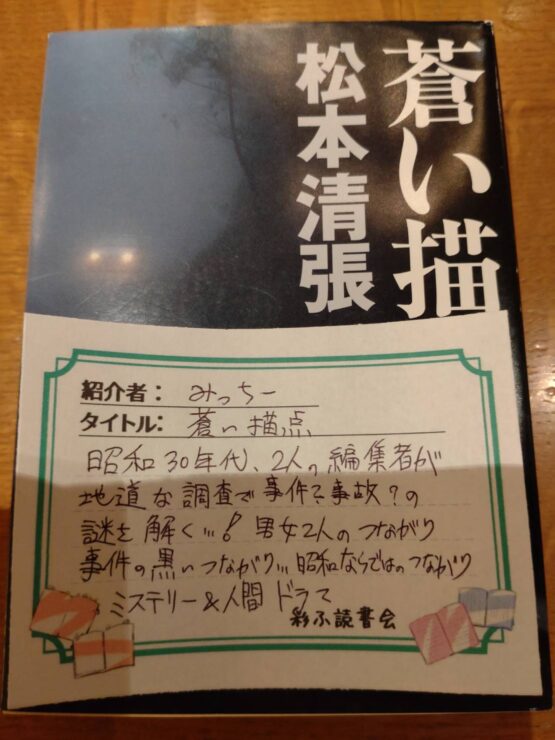 蒼い描
松本清張
紹介者： みっちー
タイトル： 蒼い描点
昭和30年代、2人の編集者が
地道な調査で事件？事故？の
謎を解く…！男女2人のつながり
事件の黒いつながり…昭和ならではのつながり
ミステリー&人間ドラマ
彩ふ読書会